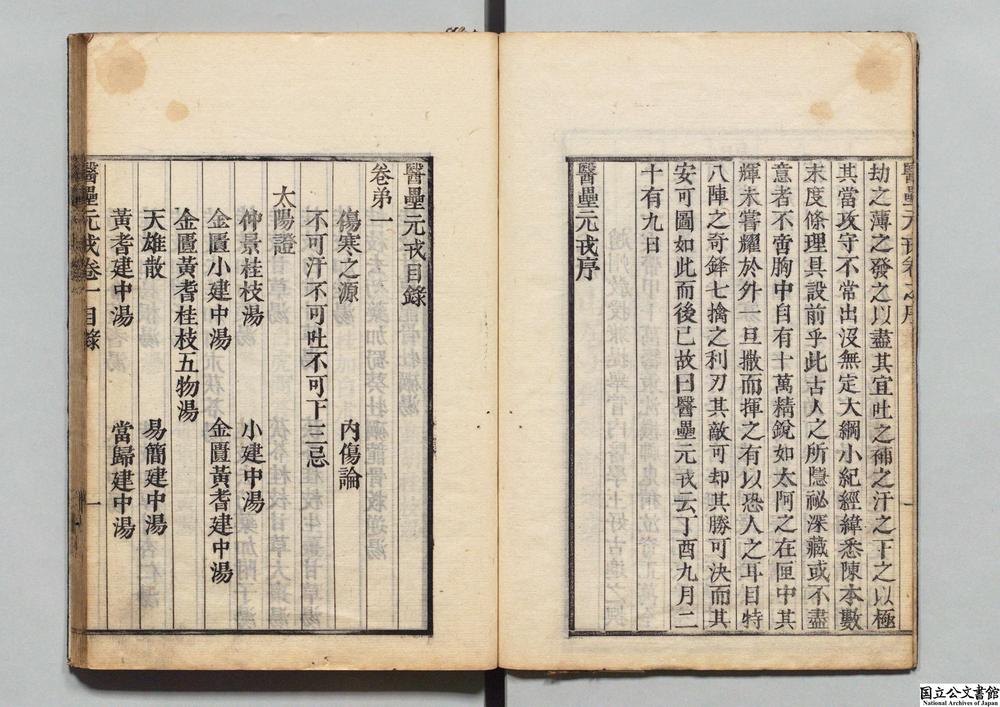 劫之薄之發之以盡其宜吐之補之汗之下之以極
其當攻守不常出没無定大綱小紀經緯悉陳本數
末度條理具設前乎此古人之所隱祕深藏或不盡
意者不啻胸中自有十萬精銳如太阿之在匣中其
輝未嘗耀於外一旦撒而揮之有以恐人之耳目特
八陣之奇鋒七擒之利刃其敵可却其勝可決而其
安可圖如此而後已故曰醫壘元戎云丁酉九月二
十有九日
醫壘元戎序
醫壘元戎目錄
卷弟一
傷寒之源 內傷論
不可汗不可吐不可下三忌
太陽證
仲景桂枝湯 小建中湯
金匱小建中湯 金匱黃耆建中湯
金匱黃耆桂枝五物湯
天雄散 易簡建中湯
黃耆建中湯 當歸建中湯
醫壘元戎卷一 目錄 一
国立公文書館
National Archives of Japan